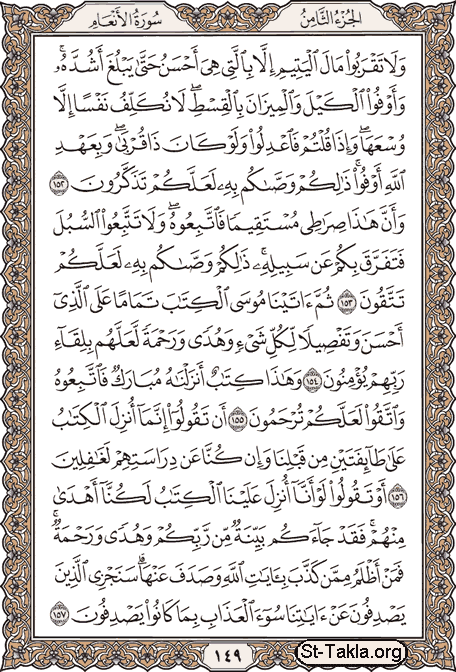 الجزء الثامن
سورة الأنعام
وَلَا تَقْرَبُوا۟ مَالَ ٱلْيَتِيمِ إِلَّا بِٱلَّتِى هِىَ أَحْسَنُ حَتَّىٰ يَبْلُغَ أَشُدَّهُۥۖ
وَأَوْفُوا۟ ٱلْكَيْلَ وَٱلْمِيزَانَ بِٱلْقِسْطِۖ لَا نُكَلِّفُ نَفْسًا إِلَّا
وُسْعَهَاۖ وَإِذَا قُلْتُمْ فَٱعْدِلُوا۟ وَلَوْ كَانَ ذَا قُرْبَىٰۖ وَبِعَهْدِ
ٱللَّهِ أَوْفُوا۟ۚ ذَٰلِكُمْ وَصَّىٰكُم بِهِۦ لَعَلَّكُمْ تَذَكَّرُونَ ١٥٢
وَأَنَّ هَٰذَا صِرَٰطِى مُسْتَقِيمًا فَٱتَّبِعُوهُۖ وَلَا تَتَّبِعُوا۟ ٱلسُّبُلَ
فَتَفَرَّقَ بِكُمْ عَن سَبِيلِهِۦۚ ذَٰلِكُمْ وَصَّىٰكُم بِهِۦ لَعَلَّكُمْ
تَتَّقُونَ ١٥٣ ثُمَّ ءَاتَيْنَا مُوسَى ٱلْكِتَٰبَ تَمَامًا عَلَى ٱلَّذِىٓ
أَحْسَنَ وَتَفْصِيلًا لِّكُلِّ شَىْءٍ وَهُدًى وَرَحْمَةً لَّعَلَّهُم بِلِقَآءِ
رَبِّهِمْ يُؤْمِنُونَ ١٥٤ وَهَٰذَا كِتَٰبٌ أَنزَلْنَٰهُ مُبَارَكٌ فَٱتَّبِعُوهُ
وَٱتَّقُوا۟ لَعَلَّكُمْ تُرْحَمُونَ ١٥٥ أَن تَقُولُوٓا۟ إِنَّمَآ أُنزِلَ ٱلْكِتَٰبُ
عَلَىٰ طَآئِفَتَيْنِ مِن قَبْلِنَا وَإِن كُنَّا عَن دِرَاسَتِهِمْ لَغَٰفِلِينَ
١٥٦ أَوْ تَقُولُوا۟ لَوْ أَنَّآ أُنزِلَ عَلَيْنَا ٱلْكِتَٰبُ لَكُنَّآ أَهْدَىٰ
مِنْهُمْۚ فَقَدْ جَآءَكُم بَيِّنَةٌ مِّن رَّبِّكُمْ وَهُدًى وَرَحْمَةٌۚ
فَمَنْ أَظْلَمُ مِمَّن كَذَّبَ بِـَٔايَٰتِ ٱللَّهِ وَصَدَفَ عَنْهَاۗ سَنَجْزِى ٱلَّذِينَ
يَصْدِفُونَ عَنْ ءَايَٰتِنَا سُوٓءَ ٱلْعَذَابِ بِمَا كَانُوا۟ يَصْدِفُونَ ١٥٧
١٤٩
St-Takla.org